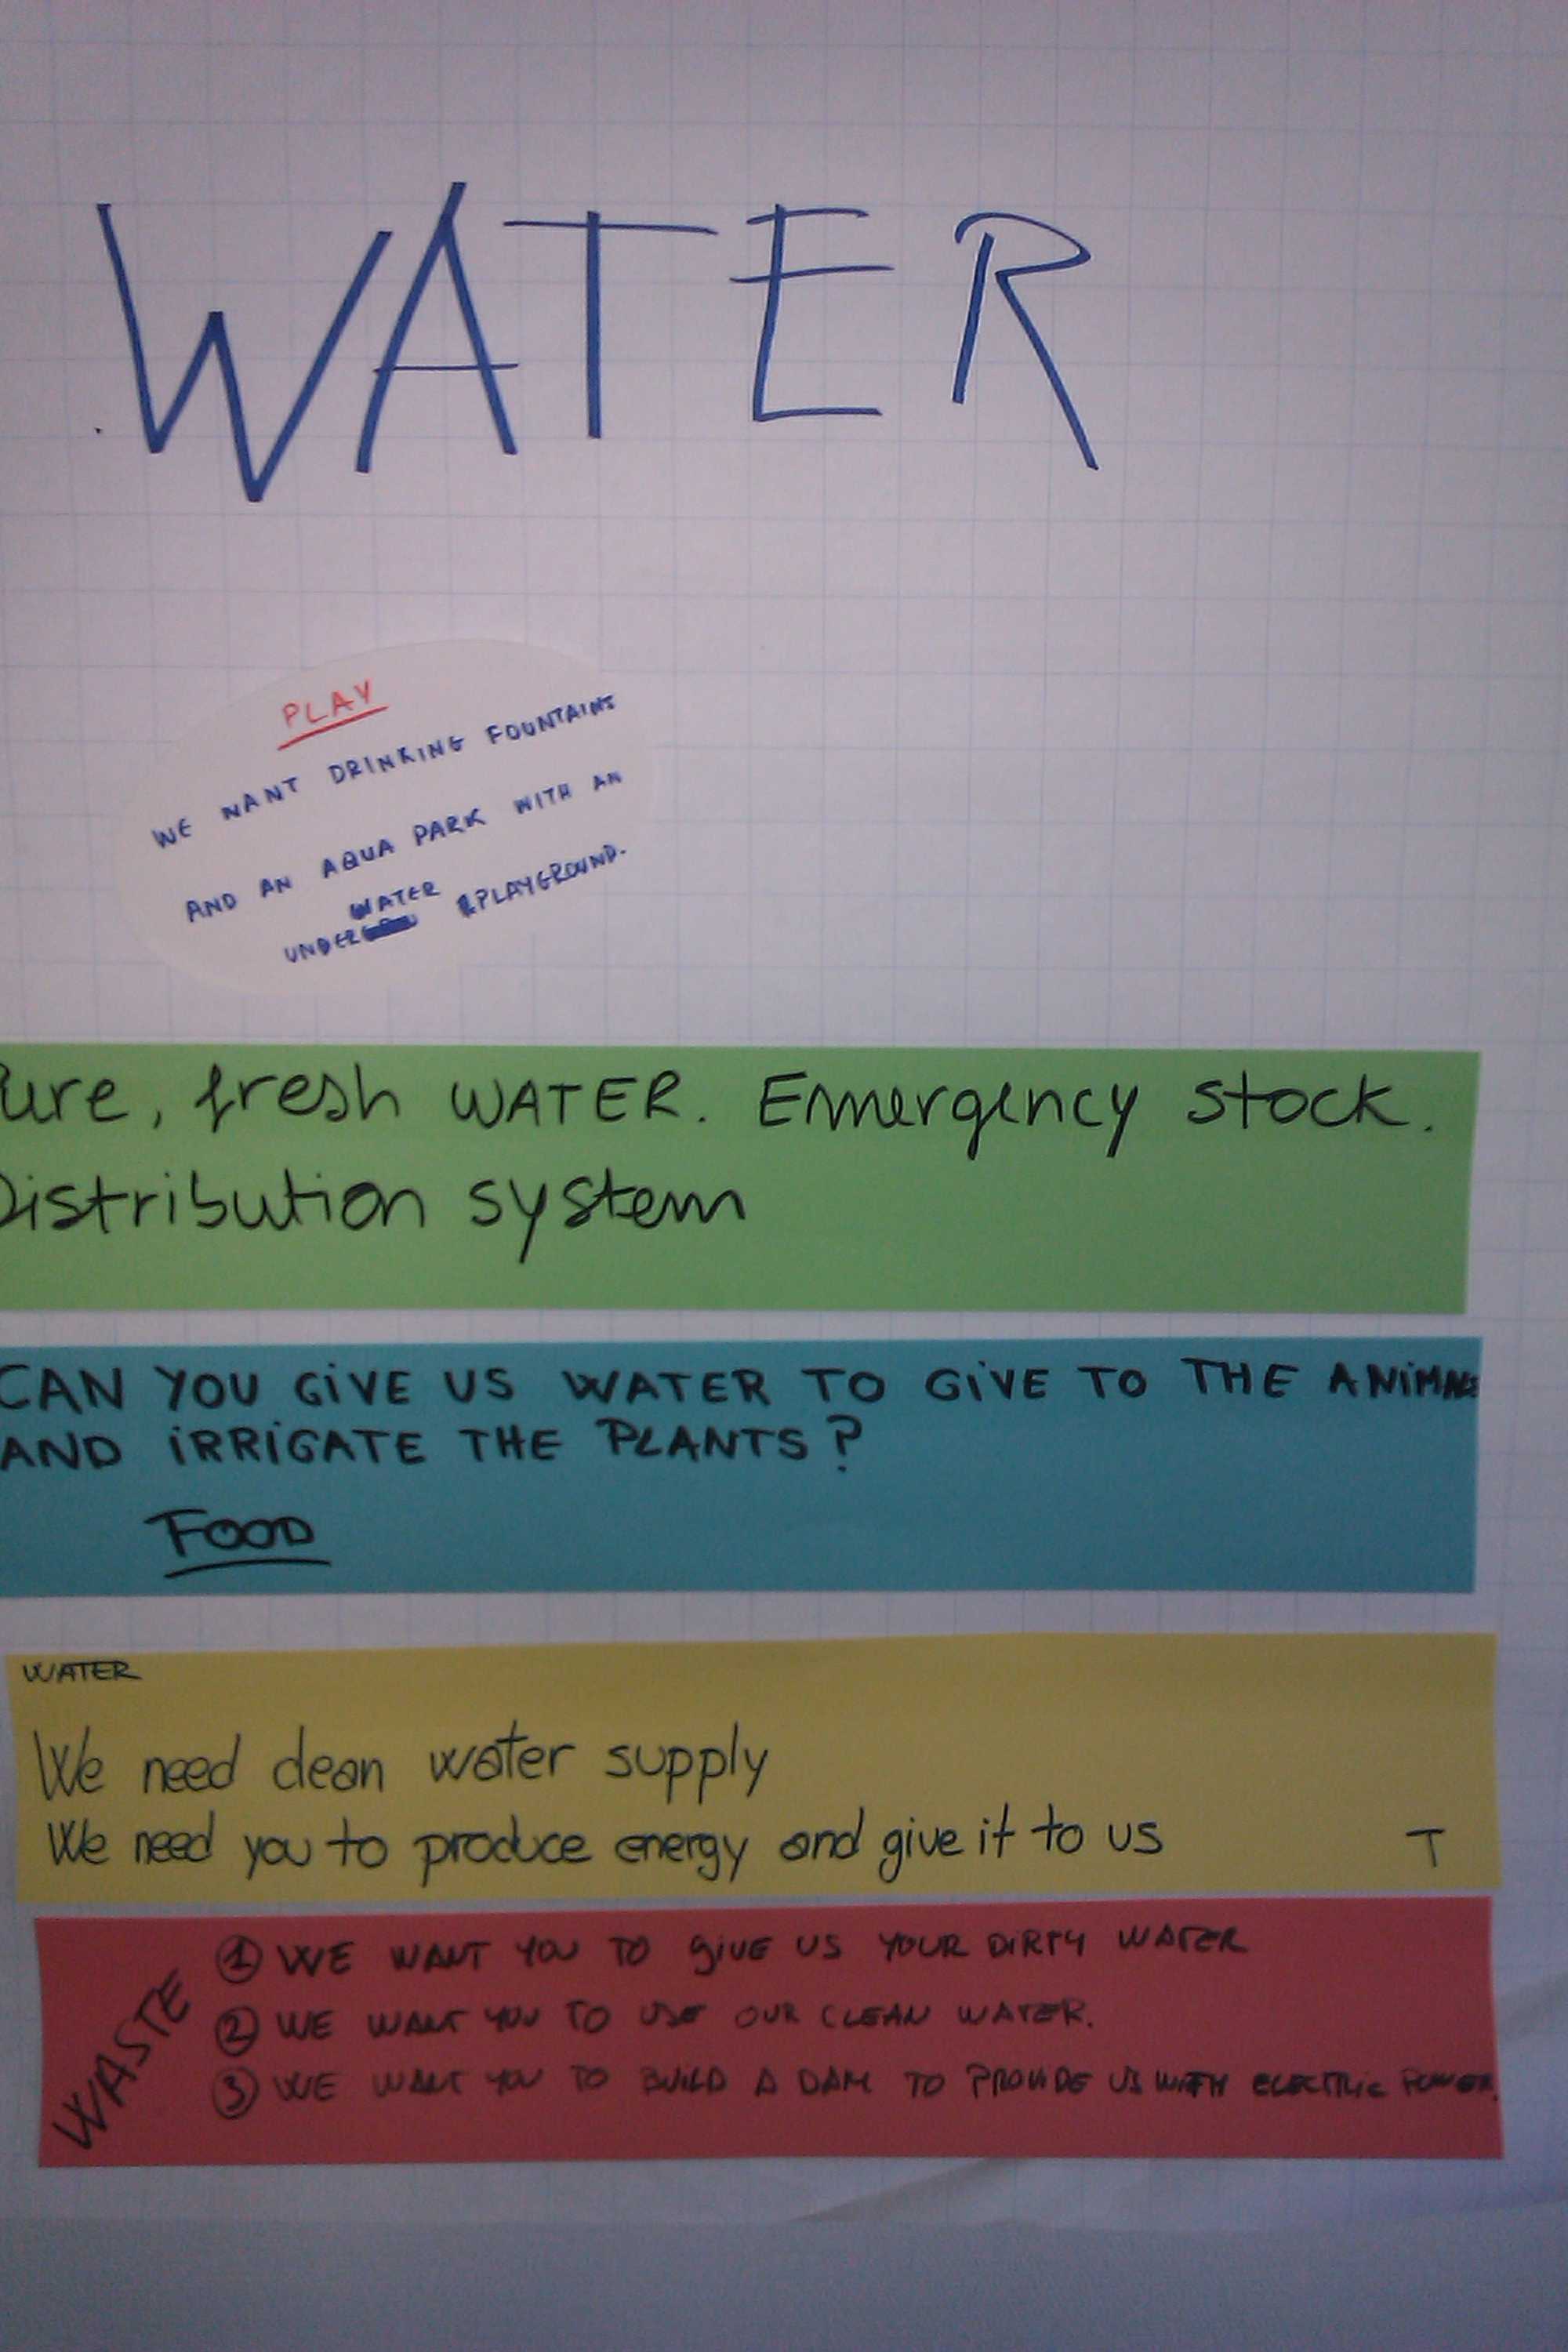 WATER
PLAY
WE WANT DRINKING FOUNTAINS
AND AN AQUA PARK WITH AN
WATER
UNDER PLAYGROUND.
Pure, fresh WATER. Emergency stock.
Distribution system
CAN YOU GIVE US WATER TO GIVE TO THE ANIMALS
AND IRRIGATE THE PLANTS?
FOOD
WATER
We need clean water supply
We need you to produce energy and give it to us T
WASTE
1 WE WANT YOU TO GIVE US YOUR DIRTY WATER
2 WE WANT YOU TO USE OUR CLEAN WATER.
3 WE WANT YOU TO BUILD A DAM TO PROVIDE US WITH ELECTRIC POWER.